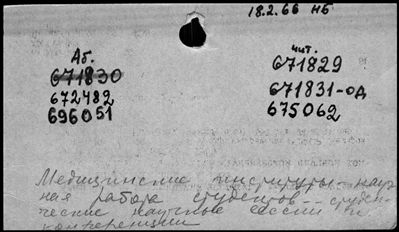 18.2.66 нб
Аб.
671830
672482
696051
чит.
671829
671831-од
675062
Медицинские институты - науч
ная работа студентов -- студен-
ческие научные сессии и
конференции